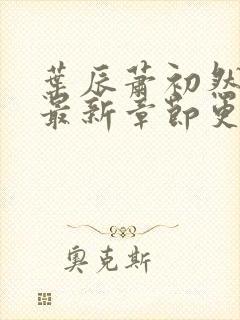 葉辰蕭初然
最新章節更
奧克斯